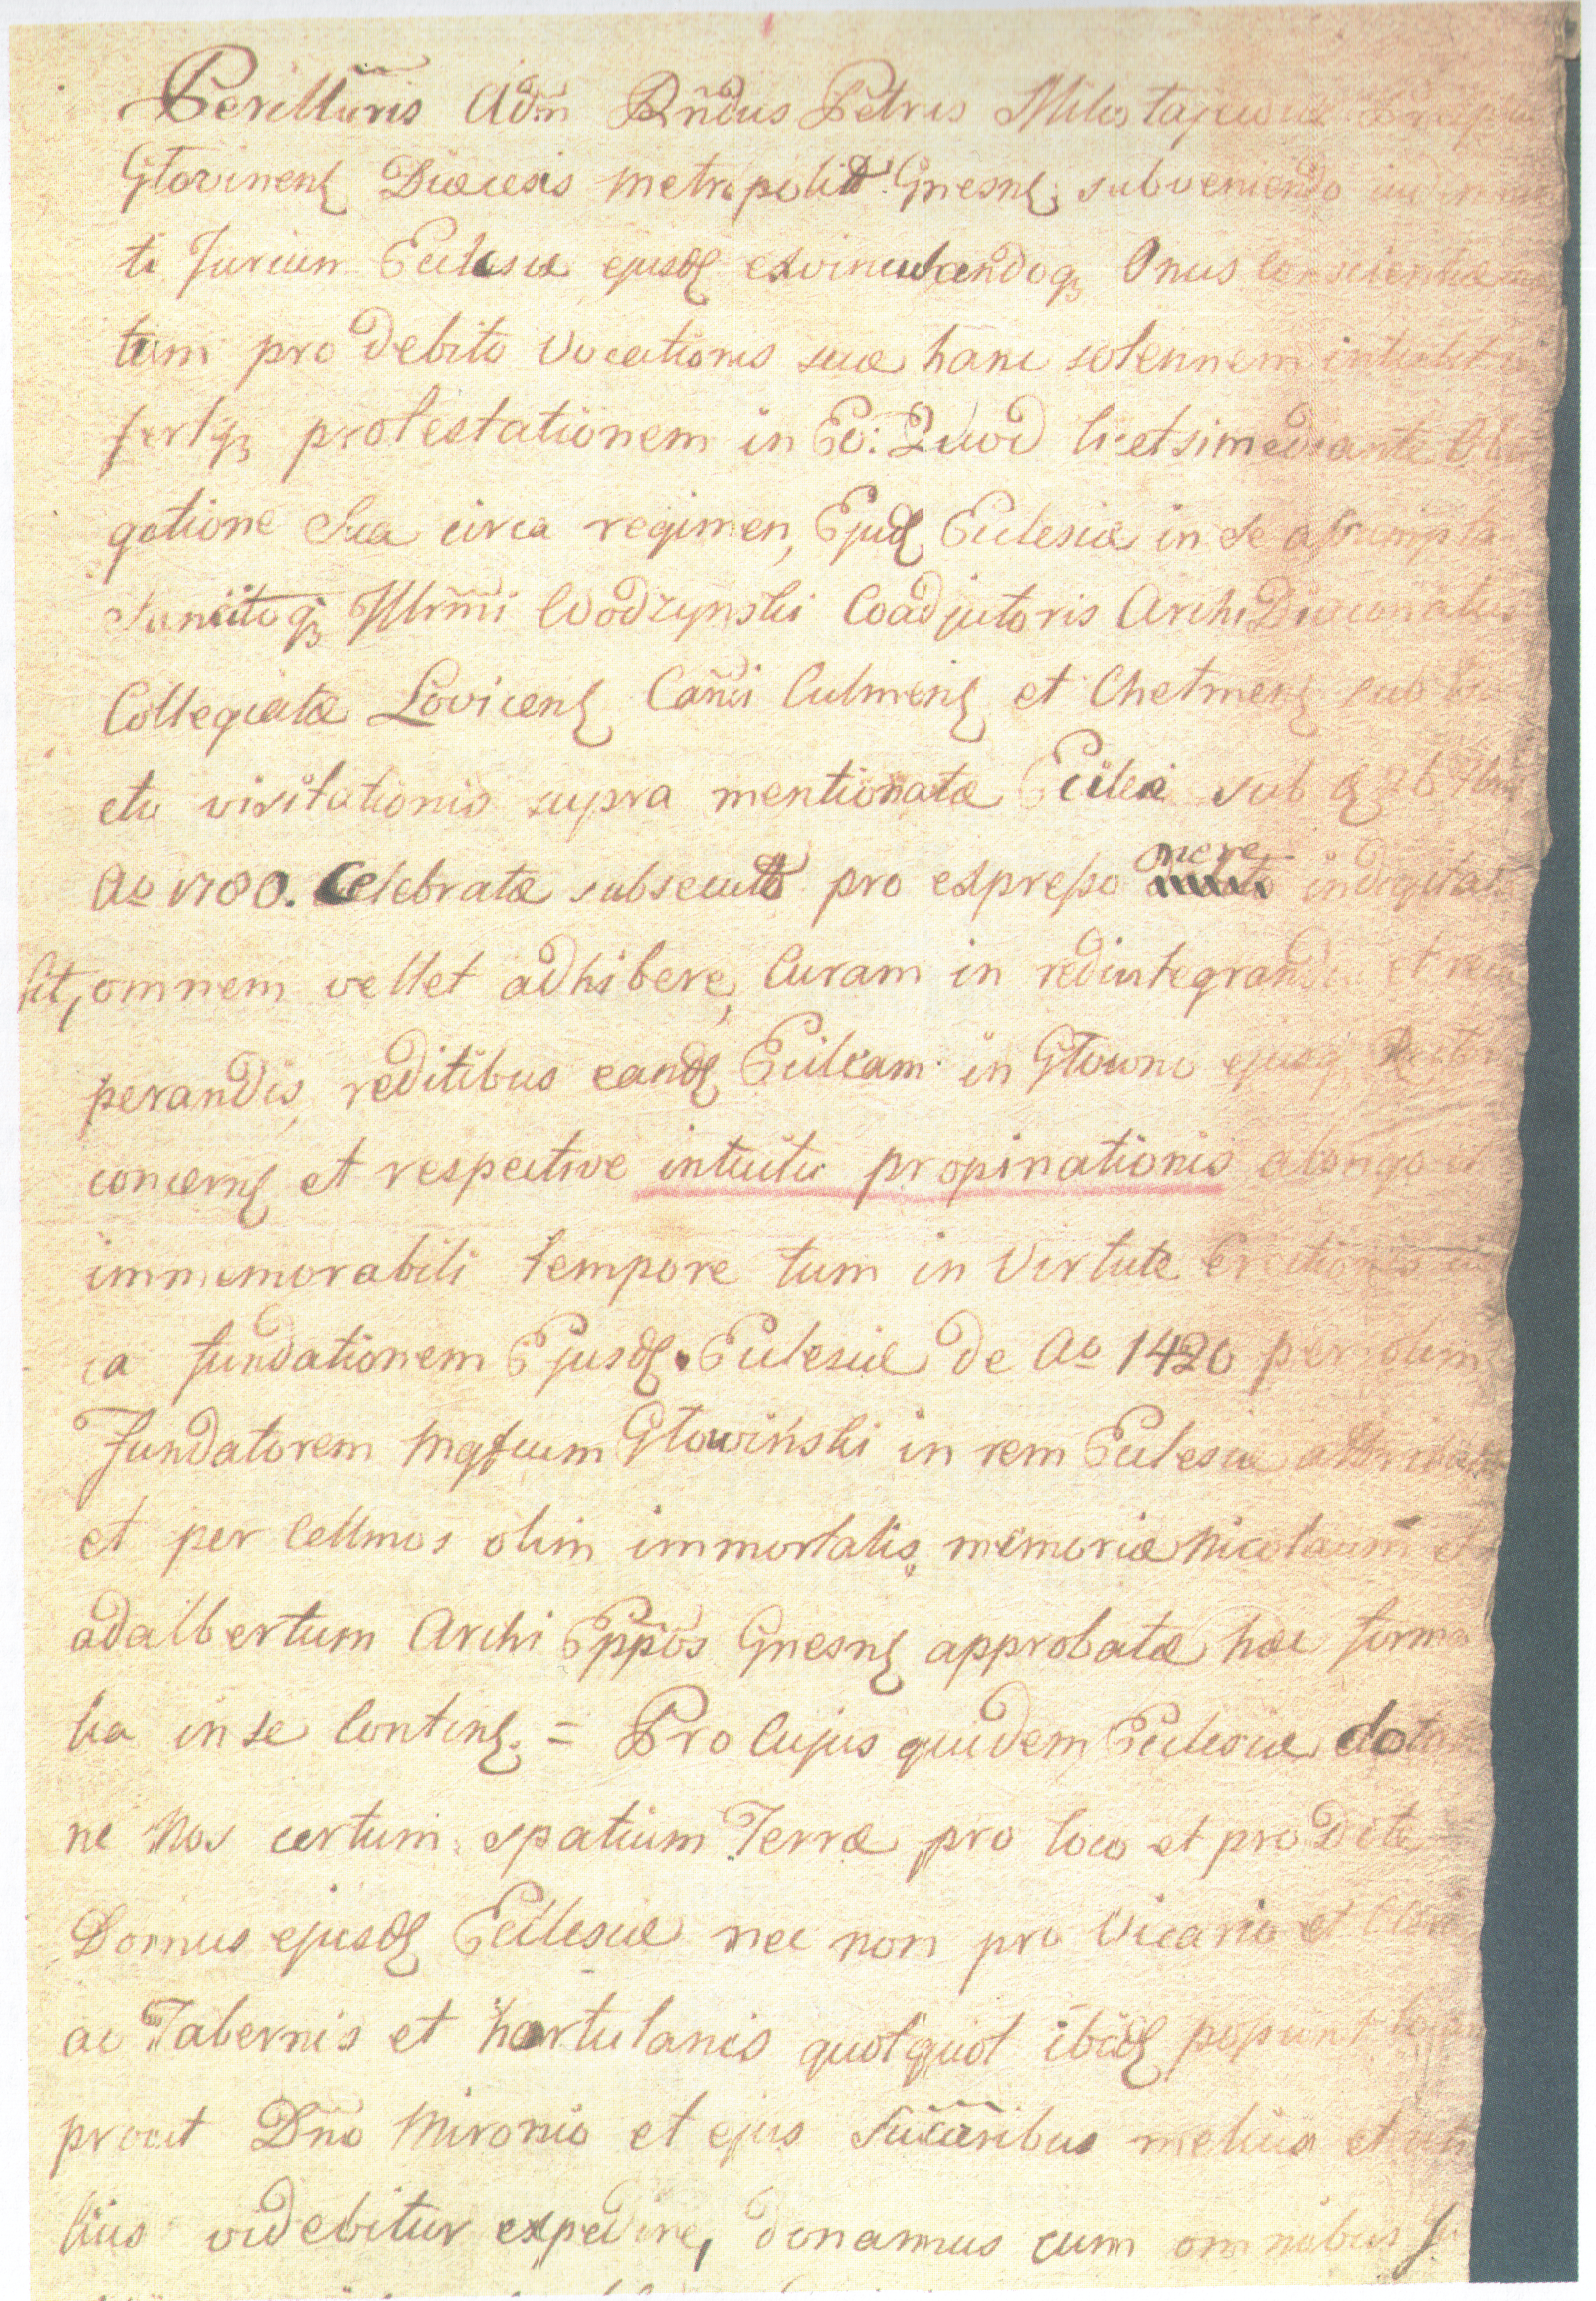 Perillũris Adm̃ Rñdus Petrus
Głovinens Diæcesis Metropolit: Gnesns subveniendo
ti Jurium Eclesiæ ejusd exvinculandoq Onus Conscientiæ
tum pro debito Vocationis suæ hanc solennem
fertq protestationem in Eo: Quod licet simediante
gatione Sua circa regimen, Ejusd Eclesiæ in se assumpta
Sancitoq Illrm̃i Wodzynski Coadjutoris Archi Diaconatus
Collegiatæ Lovicens Can̄ci Culmens et Chelmens sub
etu visitationis supra mentionatæ Ecclæ sub
Ao 1780. Celebratæ subsecut pro expresso mere
sit, omnem vellet adhibere, Curam in redintegrandis et
perandis, reditibus eand Eccleam in Głowno
concerns et respective intuitu propinationis a longo et
immemorabili tempore tum in Virtute Erectionis
ca fundationem Ejusd. Eclesiæ de Ao 1420 per olim
Fundatorem Mgfcum Głowiński in rem Eclesiæ
et per Cellmos olim immortalis memoriæ Nicolaum et
adalbertum Archi Eppõs Gnesns approbatæ hac
lia in se Contins. = Pro Cujus quidem Eclesiæ
ne Nos certum spatium Terræ pro loco et pro Dote
Domus ejusd Ecclesiæ nec non pro Vicario et
ac Tabernis et hortulanis quotquot ibid possunt
prout Dn̄o Mironio et ejus Succeribus melius et
lius videbitur expedire, donamus cum omnibus